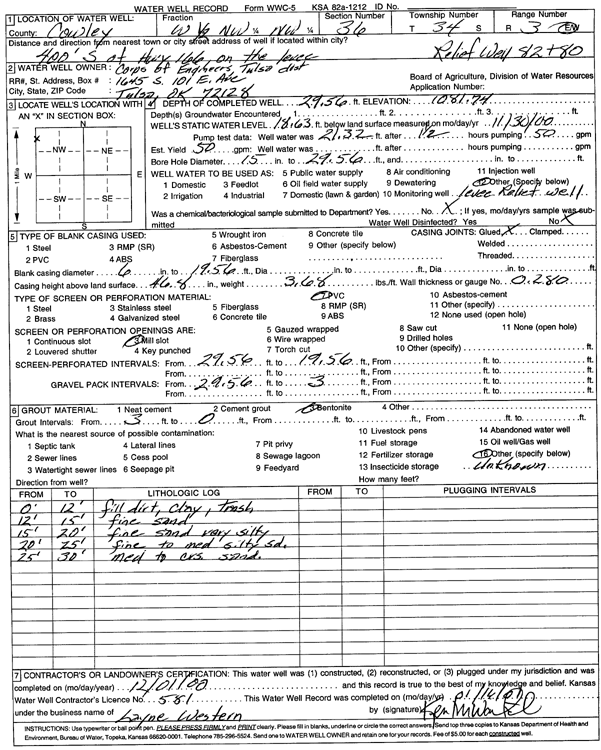 WATER WELL RECORD Form WWC-5 KSA 82a-1212 ID No.
1 LOCATION OF WATER WELL: Fraction Section Number Township Number Range Number
County: Cowley W ½ NW ¼ NW ¼ 36 T 34 S R 3 E/W
Distance and direction from nearest town or city street address of well if located within city?
400' S of Hwy 166 on the levee Relief Well 82+80
2 WATER WELL OWNER: Corps of Engineers Tulsa dist
RR#, St. Address, Box # : 1645 S. 101 E. Ave Board of Agriculture, Division of Water Resources
City, State, ZIP Code : Tulsa, OK 72128 Application Number:
3 LOCATE WELL'S LOCATION WITH AN "X" IN SECTION BOX:
N
NW NE
W E
SW SE
S
1 Mile
4 DEPTH OF COMPLETED WELL 29.56 ft. ELEVATION: 1081.74
Depth(s) Groundwater Encountered 1. ft. 2. ft. 3. ft.
WELL'S STATIC WATER LEVEL 18.63 ft. below land surface measured on mo/day/yr 11/30/00
Pump test data: Well water was 21.32 ft. after 1/2 hours pumping 50 gpm
Est. Yield 50 gpm: Well water was ft. after hours pumping gpm
Bore Hole Diameter 15 in. to 29.56 ft., and in. to ft.
WELL WATER TO BE USED AS: 5 Public water supply 8 Air conditioning 11 Injection well
1 Domestic 3 Feedlot 6 Oil field water supply 9 Dewatering 12 Other (Specify below)
2 Irrigation 4 Industrial 7 Domestic (lawn & garden) 10 Monitoring well levee Relief well
Was a chemical/bacteriological sample submitted to Department? Yes No X; If yes, mo/day/yrs sample was submitted Water Well Disinfected? Yes No X
5 TYPE OF BLANK CASING USED: 5 Wrought iron 8 Concrete tile CASING JOINTS: Glued X Clamped
1 Steel 3 RMP (SR) 6 Asbestos-Cement 9 Other (specify below) Welded
2 PVC 4 ABS 7 Fiberglass Threaded
Blank casing diameter 6 in. to 19.56 ft., Dia in. to ft., Dia in. to ft.
Casing height above land surface 46.8 in., weight 3.68 lbs./ft. Wall thickness or gauge No. 0.280
TYPE OF SCREEN OR PERFORATION MATERIAL: 7 PVC 10 Asbestos-cement
1 Steel 3 Stainless steel 5 Fiberglass 8 RMP (SR) 11 Other (specify)
2 Brass 4 Galvanized steel 6 Concrete tile 9 ABS 12 None used (open hole)
SCREEN OR PERFORATION OPENINGS ARE: 5 Gauzed wrapped 8 Saw cut 11 None (open hole)
1 Continuous slot 3 Mill slot 6 Wire wrapped 9 Drilled holes
2 Louvered shutter 4 Key punched 7 Torch cut 10 Other (specify)
SCREEN-PERFORATED INTERVALS: From 29.56 ft. to 19.56 ft., From ft. to ft.
From ft. to ft., From ft. to ft.
GRAVEL PACK INTERVALS: From 29.56 ft. to 3 ft., From ft. to ft.
From ft. to ft., From ft. to ft.
6 GROUT MATERIAL: 1 Neat cement 2 Cement grout 3 Bentonite 4 Other
Grout Intervals: From 3 ft. to 0 ft., From ft. to ft., From ft. to ft.
What is the nearest source of possible contamination: 10 Livestock pens 14 Abandoned water well
1 Septic tank 4 Lateral lines 7 Pit privy 11 Fuel storage 15 Oil well/Gas well
2 Sewer lines 5 Cess pool 8 Sewage lagoon 12 Fertilizer storage 16 Other (specify below)
3 Watertight sewer lines 6 Seepage pit 9 Feedyard 13 Insecticide storage Unknown
Direction from well? How many feet?
FROM TO LITHOLOGIC LOG FROM TO PLUGGING INTERVALS
0' 12' fill dirt, clay, trash
12' 15' fine sand
15' 20' fine sand very silty
20' 25' fine to med silty sd.
25' 30' med to crs. sand.
7 CONTRACTOR'S OR LANDOWNER'S CERTIFICATION: This water well was (1) constructed, (2) reconstructed, or (3) plugged under my jurisdiction and was
completed on (mo/day/year) 12/01/00 and this record is true to the best of my knowledge and belief. Kansas
Water Well Contractor's Licence No. 581 This Water Well Record was completed on (mo/day/yr) 01/16/01
under the business name of Layne Western by (signature)
INSTRUCTIONS: Use typewriter or ball point pen. PLEASE PRESS FIRMLY and PRINT clearly. Please fill in blanks, underline or circle the correct answers. Send top three copies to Kansas Department of Health and
Environment, Bureau of Water, Topeka, Kansas 66620-0001. Telephone 785-296-5524. Send one to WATER WELL OWNER and retain one for your records. Fee of $5.00 for each constructed well.